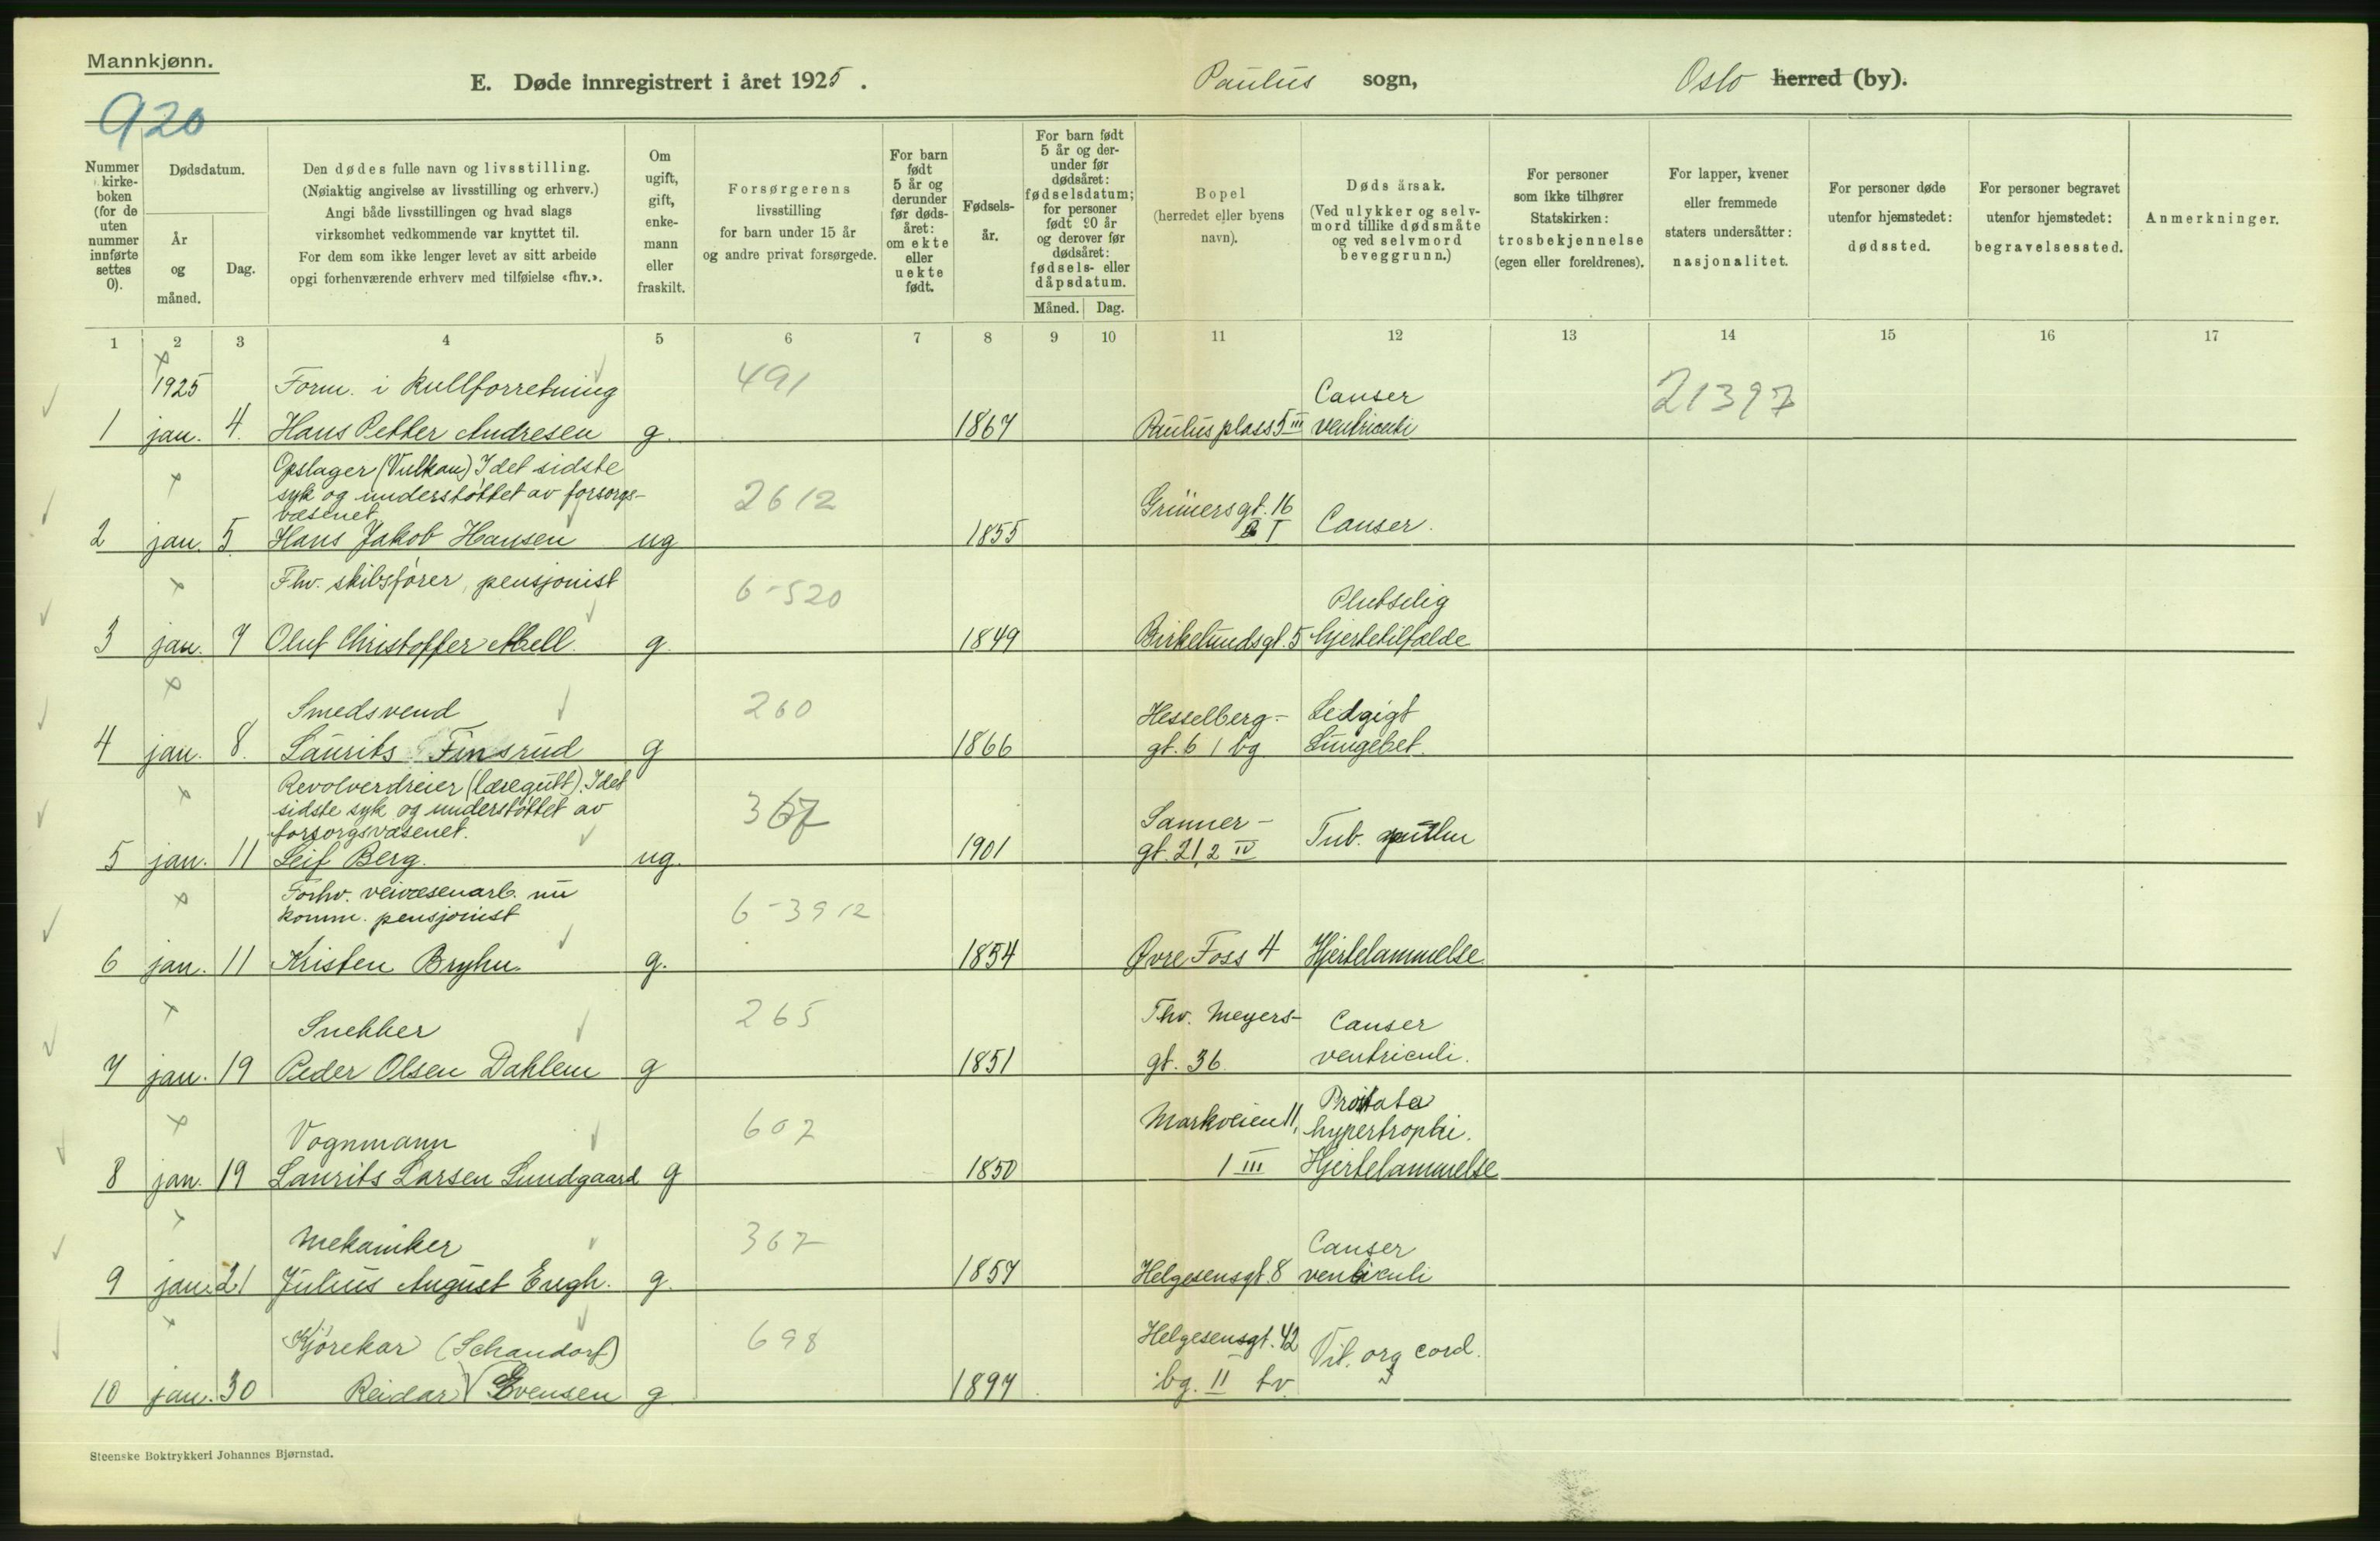 Mannkjønn.
E. Døde innregistrert i året 1925.
Paulus sogn,
Oslo herred (by).
920
Nummer i kirke-boken (for de uten nummer innførte settes 0).
Dødsdatum.
År og måned.
Dag.
Den dødes fulle navn og livsstilling.
(Nøiaktig angivelse av livsstilling og erhverv.)
Angi både livsstillingen og hvad slags
virksomhet vedkommende var knyttet til.
For dem som ikke lenger levet av sitt arbeide
opgi forhenværende erhverv med tilføielse «fhv.».
Om ugift, gift, enke-mann eller fraskilt.
Forsørgerens
livsstilling
for barn under 15 år
og andre privat forsørgede.
For barn født 5 år og derunder før døds-året: om ekte eller uekte født.
Fødsels-år.
For barn født 5 år og der-under før dødsåret: fødselsdatum; for personer født 90 år og derover før dødsåret: fødsels- eller dåpsdatum.
Måned. Dag.
Bopel
(herredet eller byens
navn).
Døds årsak.
(Ved ulykker og selv-
mord tillike dødsmåte
og ved selvmord
beveggrunn.)
For personer
som ikke tilhører
Statskirken:
trosbekjennelse
(egen eller foreldrenes).
For lapper, kvener
eller fremmede
staters undersåtter:
nasjonalitet.
For personer døde
utenfor hjemstedet:
dødssted.
For personer begravet
utenfor hjemstedet:
begravelsessted.
Anmerkninger.
1 2 3 4 5 6 7 8 9 10 11 12 13 14 15 16 17
1925 Form. i kullforretning 491 Canser 21397
1 jan. 4. Hans Petter Andresen g. 1867 Paulus plass 5 III ventriculi
Opslager (Vulkan) I det sidste
syk og understøttet av forsorgs-
væsenet 2612 Grünersgt. 16
2 jan. 5. Hans Jakob Hansen ug 1855 I Canser.
Fhv. skibsfører, pensjonist 6-520 Plutselig
3 jan. 7 Oluf Christoffer Mell. g. 1849 Birkelundsgt. 5 hjertetilfælde
Smedsvend 260 Hesselberg- Ledgigt
4 jan. 8. Laurits Finsrud g 1866 gt. 6 1 bg Lungebet.
Revolverdreier (læregutt). I det
sidste syk og understøttet av
forsorgsvæsenet. 367 Sanner-
5 jan. 11 Leif Berg. ug. 1901 gt. 21, 2 IV Tub. pulm
Forhv. veivæsenarb. nu
komm. pensjonist 6-3912
6 jan. 11 Kristen Bryhn. g. 1854 Øvre Foss 4 Hjertelammelse.
Snekker 265 Thv. Meyers- Canser
7 jan. 19 Peder Olsen Dahlem g 1851 gt. 36 ventriculi.
Vognmann 607 Markveien 11, Prostata
hypertrophi.
8 jan. 19 Laurits Larsen Lundgaard g 1850 1 III Hjertelammelse
Mekaniker 367 Canser
9 jan. 21 Julius August Engh. g. 1857 Helgesensgt. 8 ventriculi
Kjørekar (Schandorf) 698 Helgesensgt. 42 Vit. org cord.
10 jan. 30 Reidar Evensen g 1897 bg. II tv.
Steenske Boktrykkeri Johannes Bjørnstad.